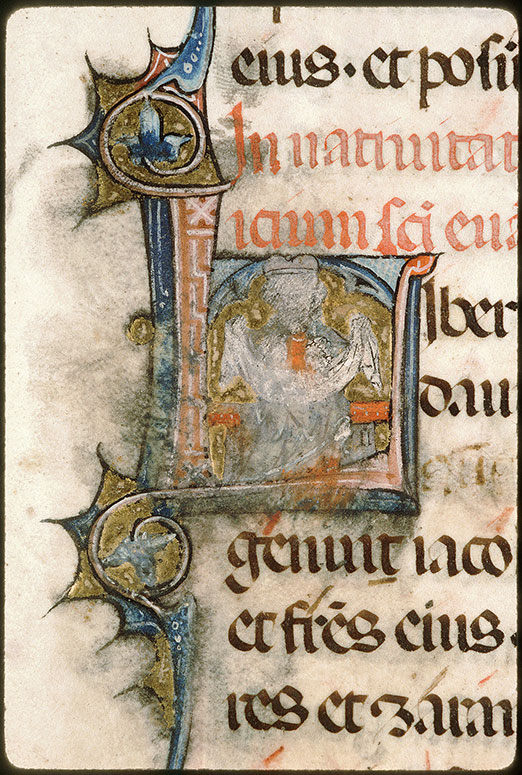 eius. et posu
In natiuitat
icium sci eua
Liber
daui
genuit iaco
et frēs eius.
res et zaram